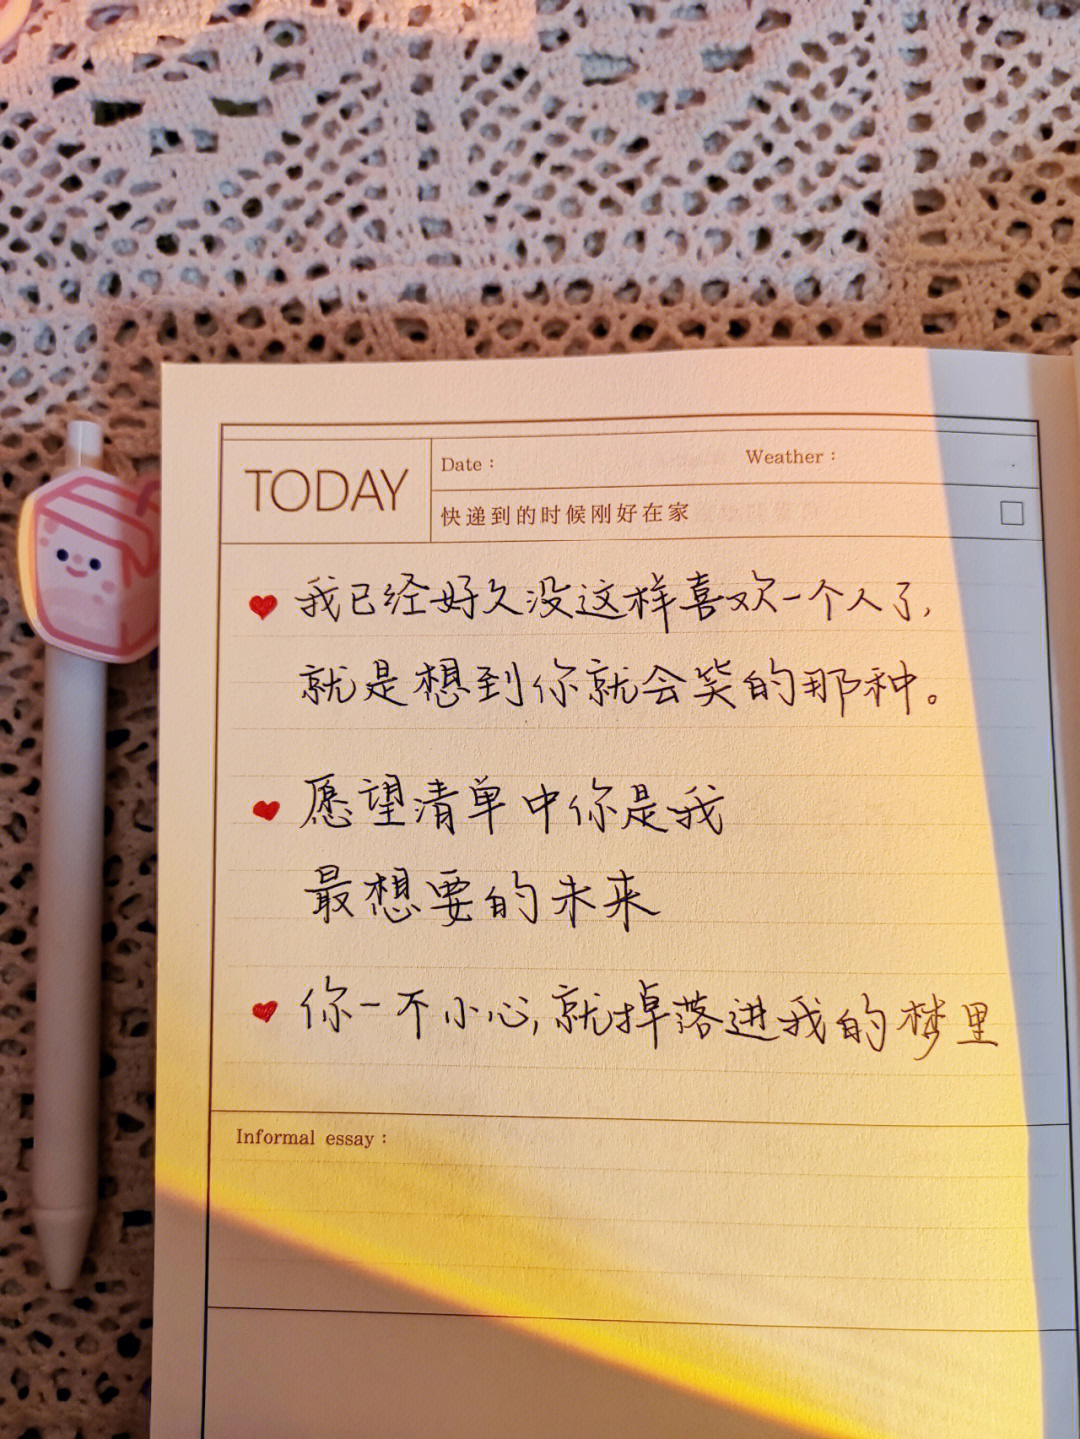 TODAY
Date：
Weather：
快递到的时候刚好在家
我已经好久没这样喜欢一个人了,
就是想到你就会笑的那种。
愿望清单中你是我
最想要的未来
你一不小心,就掉落进我的梦里
Informal essay：